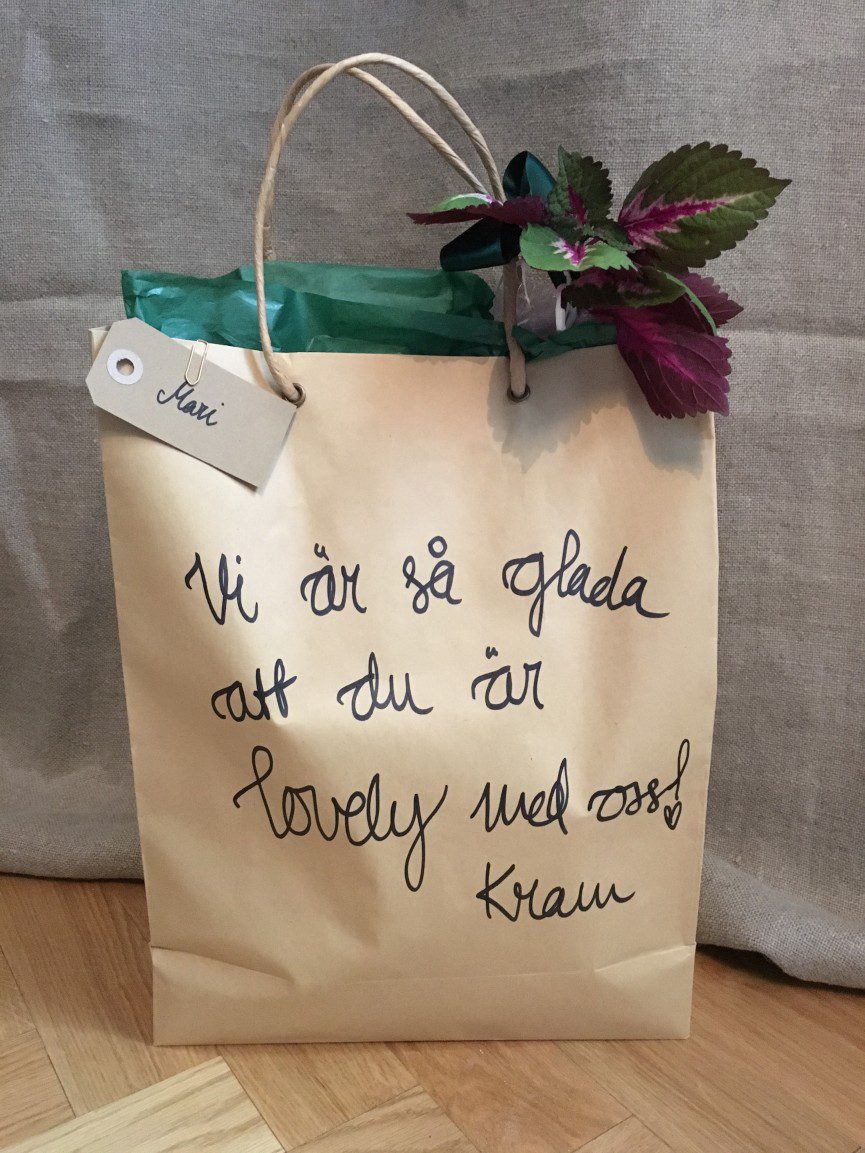 Mari
Vi är så glada
att du är
lovely med oss!
Kram